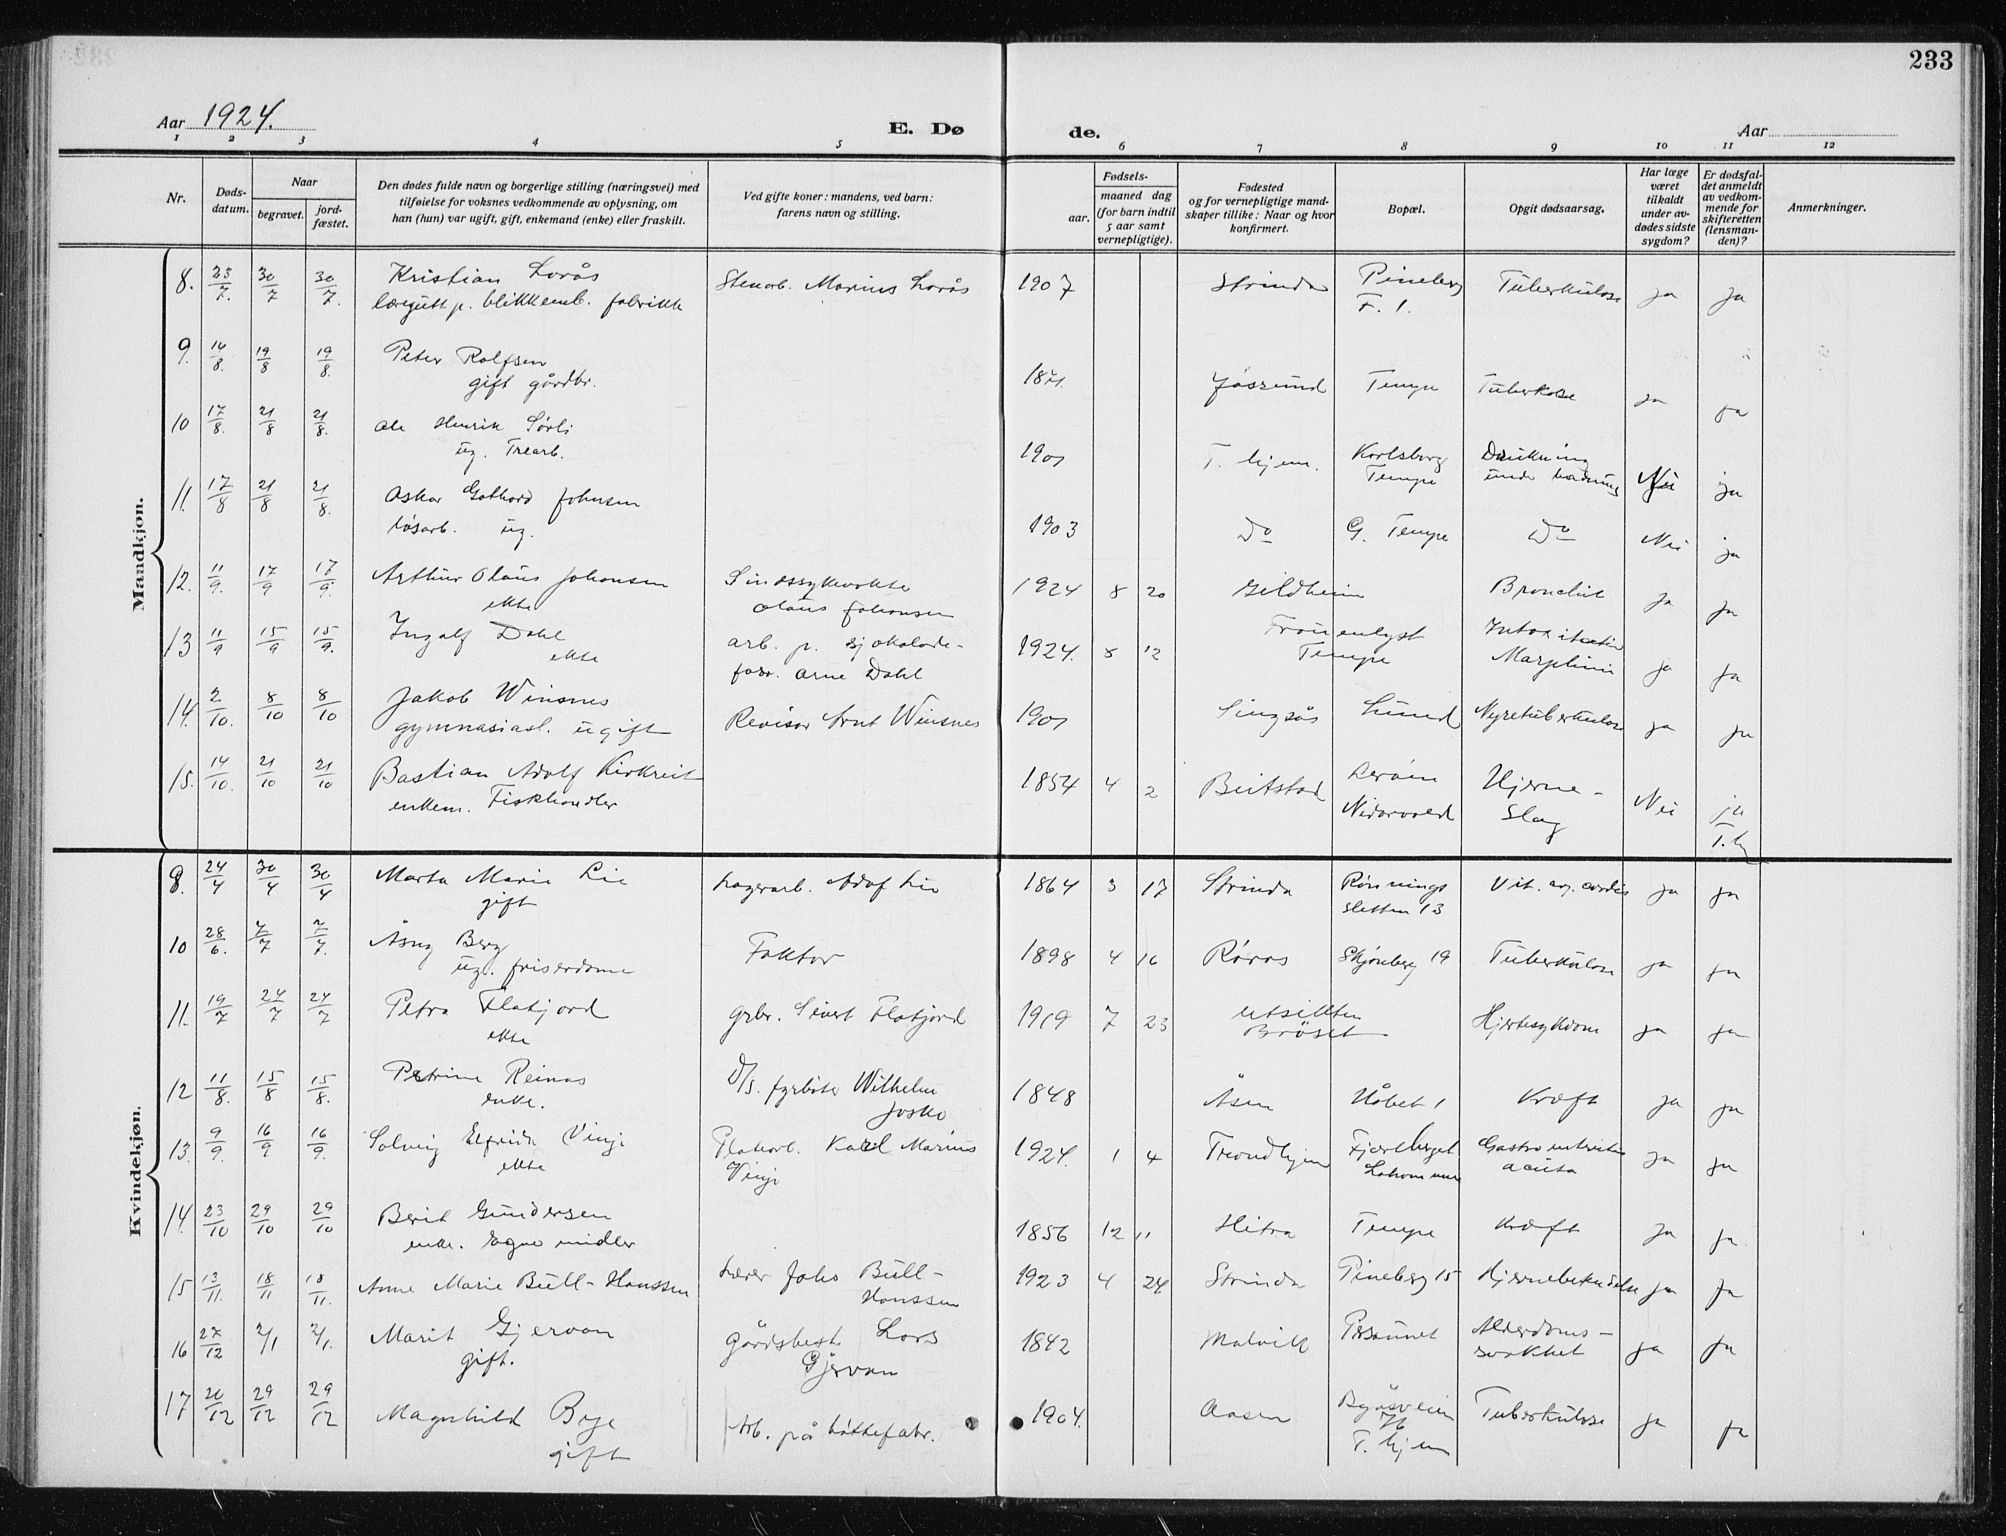 233
Aar 1924.
E. Døde.
Aar
1 2 3 4 5 6 7 8 9 10 11 12
Nr.
Døds-datum.
Naar
begravet.
jord-fæstet.
Den dødes fulde navn og borgerlige stilling (næringsvei) med
tilføielse for voksnes vedkommende av oplysning, om
han (hun) var ugift, gift, enkemand (enke) eller fraskilt.
Ved gifte koner: mandens, ved barn:
farens navn og stilling.
Fødsels-
aar.
maaned dag
(for barn indtil
5 aar samt
vernepligtige).
Fødested
og for vernepligtige mand-
skaper tillike: Naar og hvor
konfirmert.
Bopæl.
Opgit dødsaarsag.
Har læge
været
tilkaldt
under av-
dødes sidste
sygdom?
Er dødsfal-
det anmeldt
av vedkom-
mende for
skifteretten
(lensman-
den)?
Anmerkninger.
Mandkjøn.
8. 23/7. 30/7 30/7. Kristian Lorås Stenarb. Marius Lorås 1907 Strinda Pineberg Tuberkulose ja ja
læregutt p. blikkemb. fabrikk F. 1.
9. 14/8. 19/8 19/8. Peter Rolfsen
gift gårdbr. Jøssund Tempe Tuberkose ja ja
10 17/8. 21/8 21/8. Ole Henrik Sørli
ug. Trearb. 1901 T. hjem. Karlsborg Drukning
Tempe under badning Nei ja
11. 17/8 21/8 21/8. Oskar Gothard Johnsen
løsarb. ug. 1903 Do G. Tempe Do Nei ja
12. 11/9. 17/9 17/9. Arthur Olaus Johansen Sindssykevokte 1924 8 20 Gildheim Bronchit ja ja
ekte Olaus Johansen
13 11/9 15/9 15/9. Ingolf Dahl arb. p. sjokolade- 1924. 8 12 Frouenlyst
ekte fabr. Arne Dahl Tempe ja ja
14. 2/10. 8/10 8/10 Jakob Winsnes
gymnasiast. ugift Revisor Arnt Winsnes 1901 Singsås Lund Nyretuberkulose ja ja
15. 14/10. 21/10 21/10 Bastian Adolf Kirkreit 1854 4 2 Beitstad Lerøen Hjerne-
enkem. Fiskhandler Nidarvold slag Nei ja
T. hj
Kvindekjøn.
9. 24/4 30/4 30/4 Marta Marie Lie Lagerarb. Adof Lie 1864 3 17 Strinda Rønnings Vit. org. cordis ja ja
gift sletten 13
10 28/6. 7/7 7/7. Åsny Berg Faktor 1898 4 16 Røros Skjønberg 19 Tuberkulose ja ja
ug. friserdame
11. 19/7 24/7 24/7 Petra Flatjord grbr. Sivert Flatjord 1919 7 23 Utsikten Hjertesykdom ja ja
ekte Brøset
12 11/8. 15/8 15/8. Petrine Reinås D/S. fyrbøter Wilhelm 1848 Åsen Håbet 1 Kræft ja ja
enke.
13. 9/9. 16/9 16/9. Solveig Elfrida Vinje Platarb. Karl Marius 1924. 1 4 Trondhjem Fjærlberget Gastro enteritis ja ja
ekte Vinje acuta
14. 23/10 29/10 29/10 Berit Gundersen 1856 12 11 Hitra Tempe Kræft ja ja
enke. Egne midler
15 13/11. 18/11 18/11. Anne Marie Bull-Hanssen Lærer Johs Bull- 1923 4 24 Strinda Pineberg 15 Hjernebetendelse ja ja
Hanssen
16 27/12 2/1 2/1. Marit Gjervan Gårdsbest. Lars 1842 Malvik Presaunet Alderdoms-
gift. Gjervan svakhet ja ja
17 20/12 29/12 29/12 Magnhild Bye Arb. på hattefabr. 1904. Aasen Byåsveien Tuberkulose ja ja
gift T. hjem